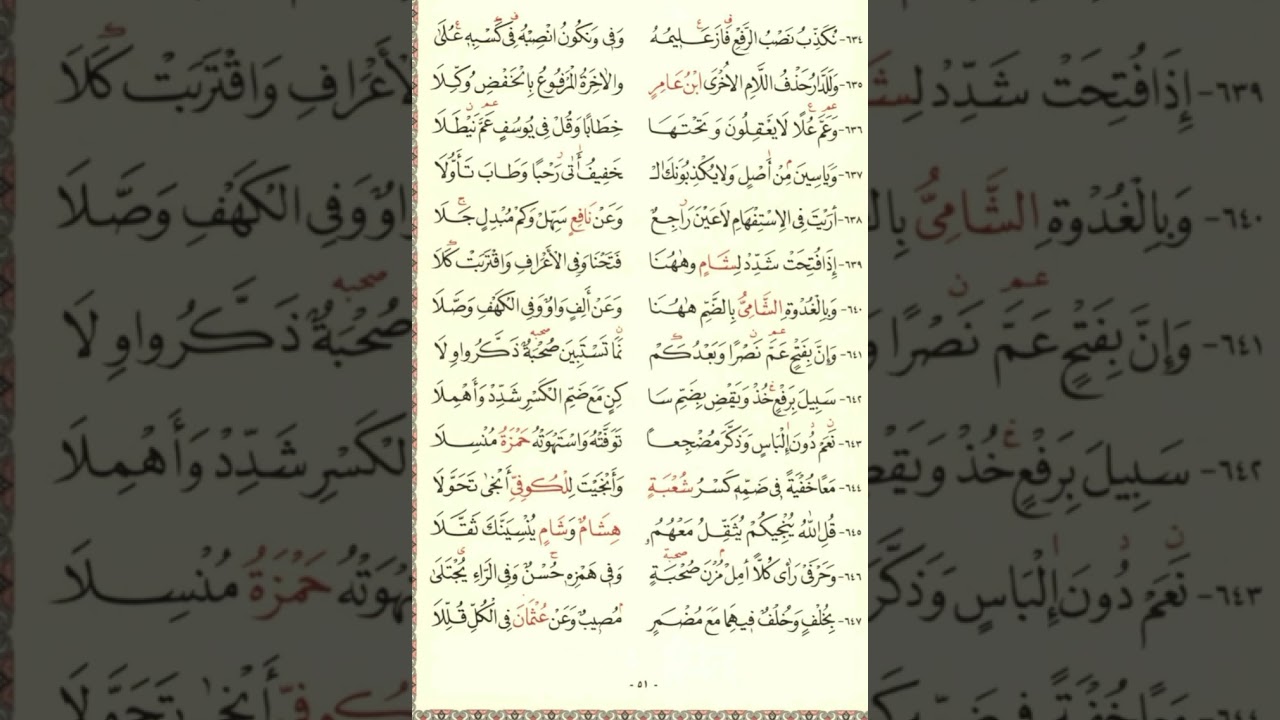 ٦٣٤- نُكَذِّبُ نَصْبُ الرَّفْعِ فَازَ عَلِيمُهُ وَفِي وَنَكُونُ انْصِبْهُ فِي كَسْبِهِ عُلَى
٦٣٥- وَلَلدَّارُ حَذْفُ اللَّامِ الْأُخْرَى ابْنُ عَامِرٍ وَالْآخِرَةُ الْمَرْفُوعُ بِالْخَفْضِ وُكِّلَا
٦٣٦- وَعَمَّ عُلًا لَا يَعْقِلُونَ وَتَحْتَهَا خِطَابًا وَقُلْ فِي يُوسُفٍ عَمَّ نَيْطَلَا
٦٣٧- وَيَاسِينَ مِنْ أَصْلٍ وَلَا يُكْذِبُونَكَ الْـ خَفِيفُ أَتَى رُحْبًا وَطَابَ تَأَوُّلَا
٦٣٨- أَرَيْتَ فِي الِاسْتِفْهَامِ لَا عَيْنَ رَاجِعٌ وَعَنْ نَافِعٍ سَهِّلْ وَكَمْ مُبْدِلٍ جَلَا
٦٣٩- إِذَا فُتِحَتْ شَدِّدْ لِشَامٍ وَهٰهُنَا فَتَحْنَا وَفِي الْأَعْرَافِ وَاقْتَرَبَتْ كَلَا
٦٤٠- وَبِالْغُدْوَةِ الشَّامِيُّ بِالضَّمِّ هٰهُنَا وَعَنْ أَلِفٍ وَاوٌ وَفِي الْكَهْفِ وَصَّلَا
٦٤١- وَإِنَّ بِفَتْحٍ عَمَّ نَصْرًا وَبَعْدُ كَمْ نَمَا تَسْتَبِينَ صُحْبَةٌ ذَكَّرُوا وِلَا
٦٤٢- سَبِيلَ بِرَفْعٍ خُذْ وَيَقْضِ بِضَمِّ سَا كِنٍ مَعَ ضَمِّ الْكَسْرِ شَدِّدْ وَأَهْمِلَا
٦٤٣- نَعَمْ دُونَ إِلْبَاسٍ وَذَكَّرَ مُضْجِعًا تَوَفَّتْهُ وَاسْتَهْوَتْهُ حَمْزَةُ مُنْسِلَا
٦٤٤- مَعًا خُفْيَةً فِي ضَمِّهِ كَسْرُ شُعْبَةٍ وَأَنْجَيْتَ لِلْكُوفِيِّ أَنْجَى تَحَوَّلَا
٦٤٥- قُلِ اللهُ يُنْجِيكُمْ يُثَقِّلُ مَعْهُمُ هِشَامٌ وَشَامٍ يُنْسِيَنَّكَ ثَقَّلَا
٦٤٦- وَحَرْفَيْ رَأَى كُلًّا أَمِلْ مُزْنَ صُحْبَةٍ وَفِي هَمْزِهِ حُسْنٌ وَفِي الرَّاءِ يُجْتَلَى
٦٤٧- بِخُلْفٍ وَخُلْفٌ فِيهِمَا مَعَ مُضْمَرٍ مُصِيبٌ وَعَنْ عُثْمَانَ فِي الْكُلِّ قَلِّلَا
- ٥١ -